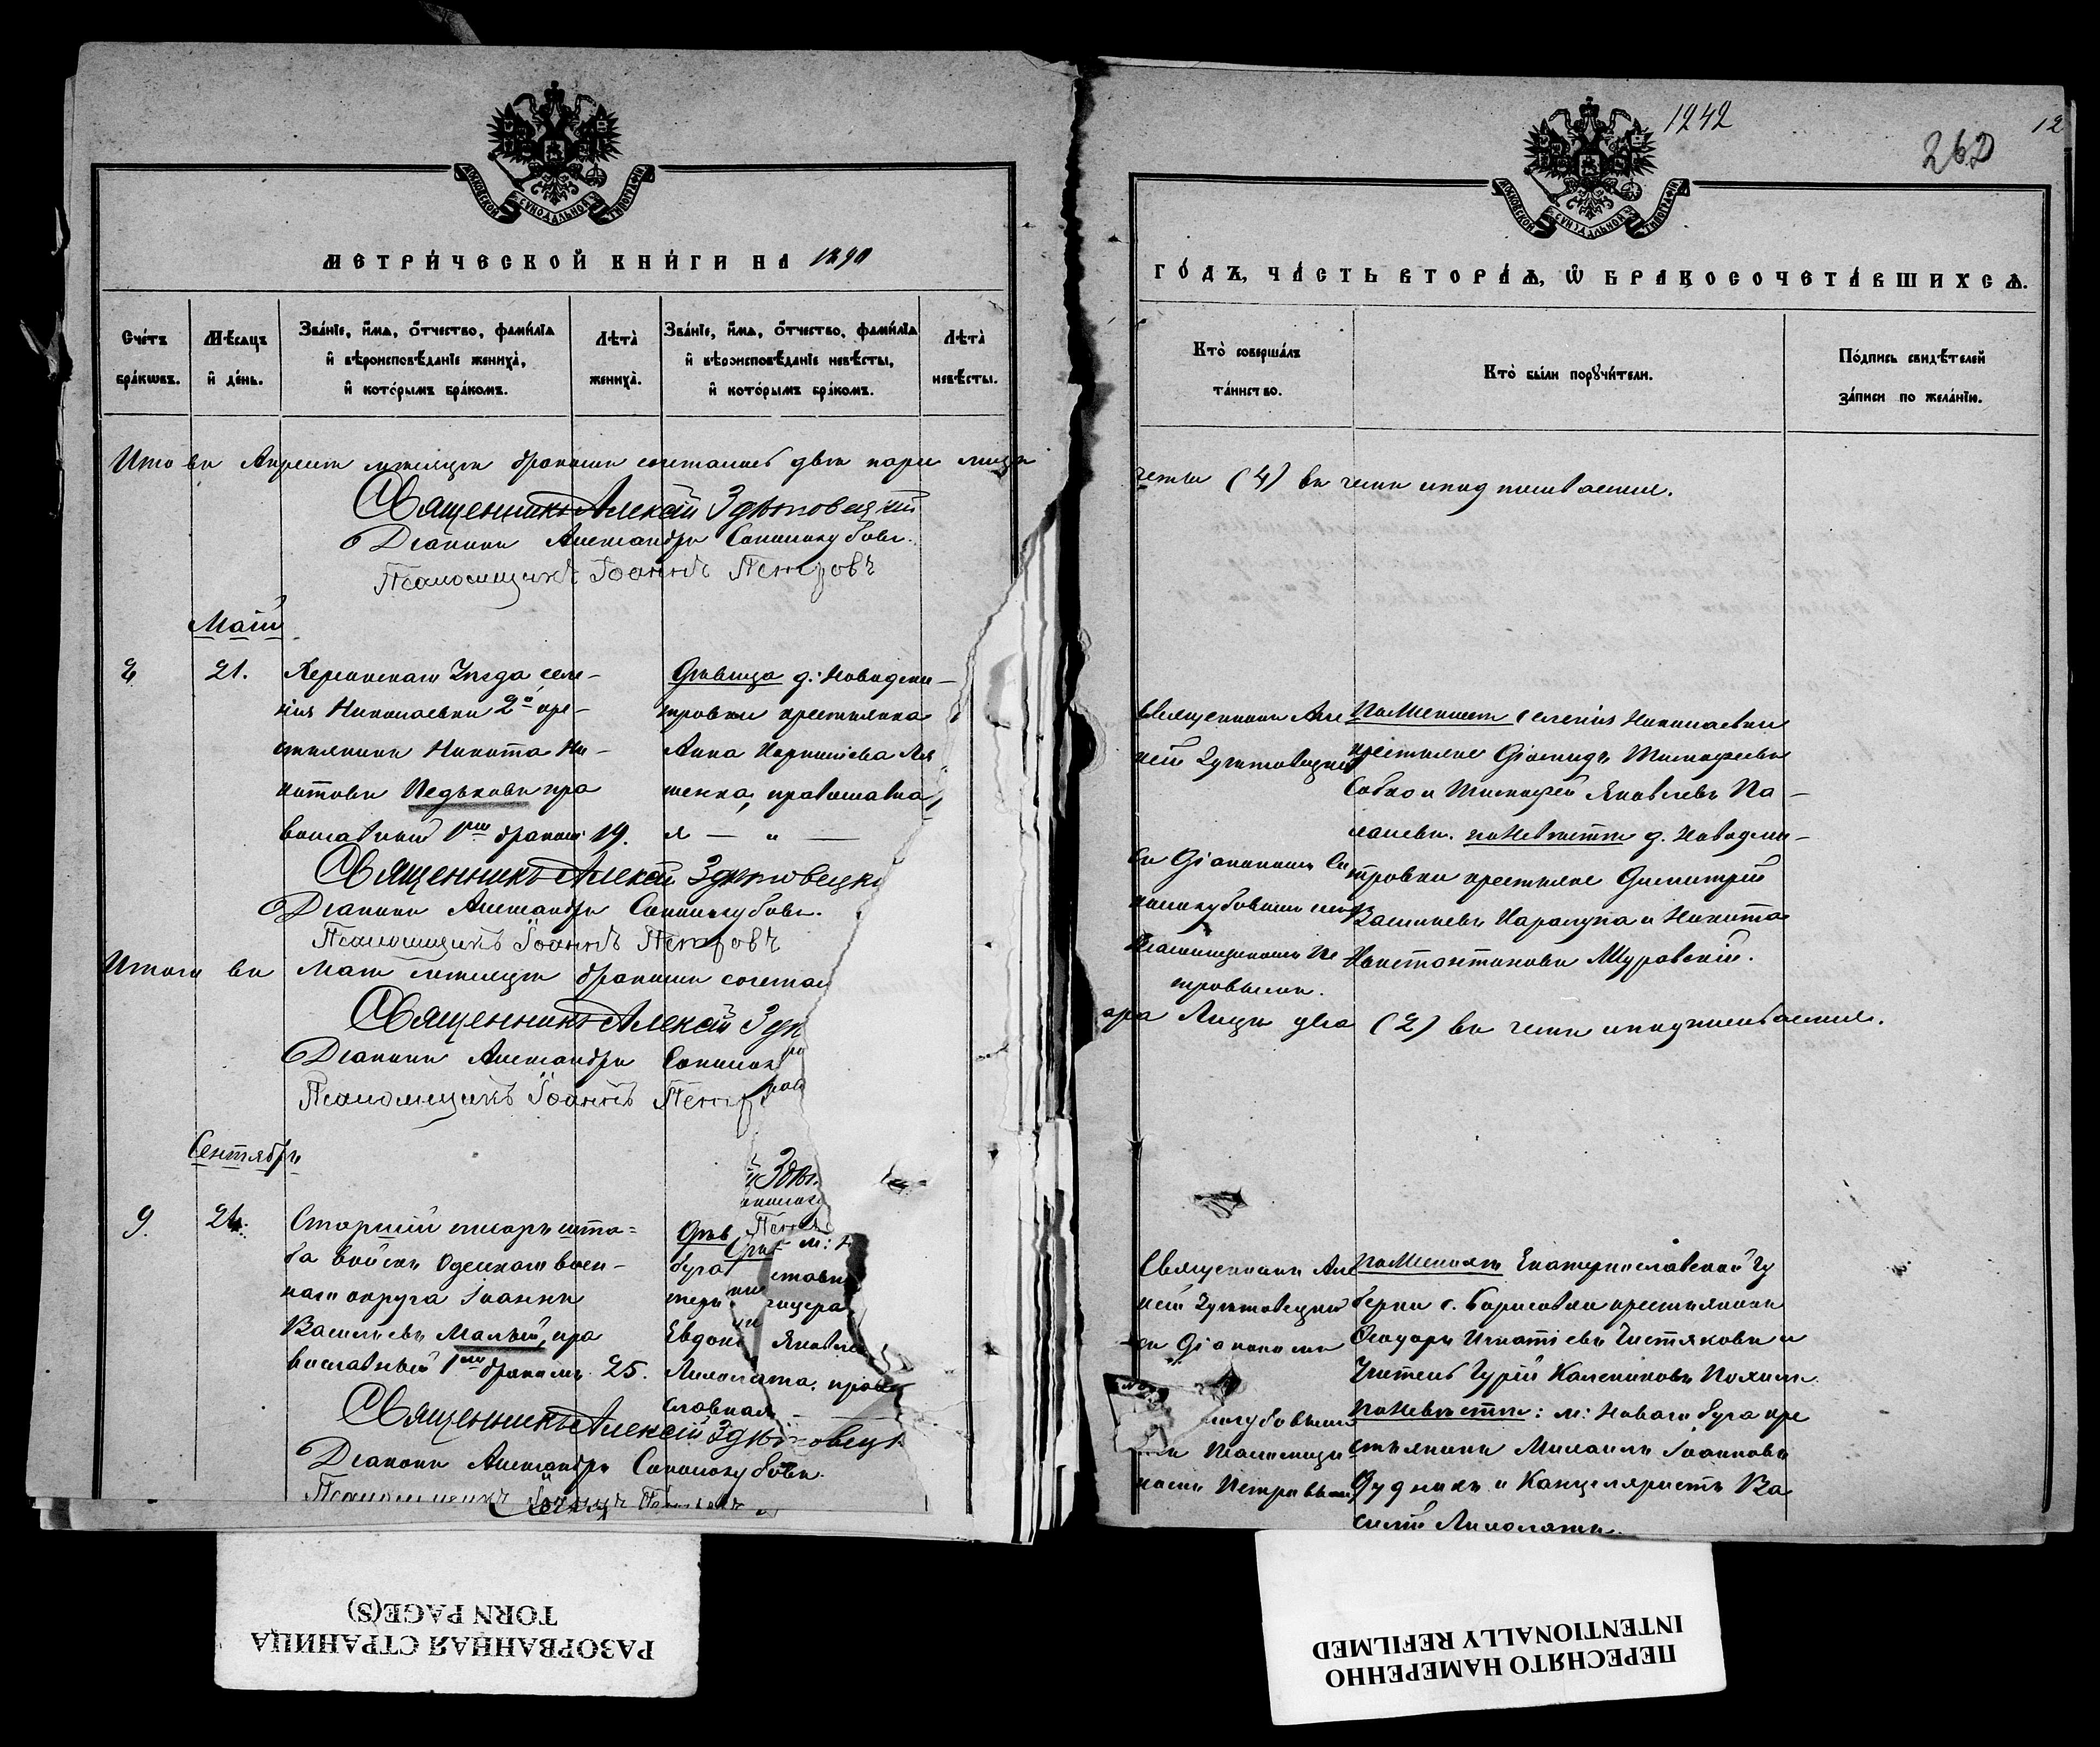 МОСКОВСКОЙ СѴНОДАЛЬНОЙ ТИПОГРАФІИ
МЕТРИ́ЧЕСКОЙ КНИ́ГИ НА 1890
Сче́тъ бра́кѡвъ.
Мѣ́сяцъ и҆ де́нь.
Зва́нїе, и҆́мѧ, ѻ҆́тчество, фами́лїа и҆ вѣроисповѣ́данїе жениха̀, и҆ кото́рымъ бра́комъ.
Лѣта̀ жениха̀.
Зва́нїе, и҆́мѧ, ѻ҆́тчество, фами́лїа и҆ вѣроисповѣ́данїе невѣ́сты, и҆ кото́рымъ бра́комъ.
Лѣта̀ невѣ́сты.
въ Апрелѣ мѣсяцѣ бракомъ сочеталось двѣ пары лицъ
Священникъ Алексѣй Здѣтовецкій
Діаконъ Александръ Сокологубовъ.
Псаломщикъ Іоаннъ Петровъ
Май
8
21.
Херсонскаго Уѣзда селе-
нія Николаевки 2й кре-
стьянинъ Никита Ни-
китовъ Недьковъ пра
вославный 1мъ бракомъ
19.
Дѣвица д: Новодми-
тровки крестьянка
Анна Корнилиева Ля
шенко, православна
я — " —
Священникъ Алексѣй Здѣтовецкі
Діаконъ Александръ Сокологубовъ.
Псаломщикъ Іоаннъ Петровъ
Итого въ Маѣ мѣсяцѣ бракомъ сочета
Священникъ Алексѣй Здѣ
Діаконъ Александръ Соколог
Псаломщикъ Іоаннъ Петров
Сентябрь
9.
24.
Старшій писарь шта-
ба войскъ Одесскаго воен-
наго округа Іоаннъ
Васильевъ Малый, пра
вославный 1мъ бракомъ
25.
Дѣв м: Н
буга отставн
Евдокі Яковле
Лихолата, право
славная —
Священникъ Алексѣй Здѣтовецк
Діаконъ Александръ Сокологубовъ.
Псаломщикъ Іоаннъ Петровъ
МОСКОВСКОЙ СѴНОДАЛЬНОЙ ТИПОГРАФІИ
1242
262
12
ГО́ДЪ, ЧА́СТЬ ВТОРА́Ѧ, Ѽ БРАКОСОЧЕТА́ВШИХСѦ.
Кто̀ соверша́лъ та́инство.
Кто̀ бы́ли порꙋчи́тели.
По́дпись свидѣ́телей за́писи по жела́нїю.
четы (4) въ чемъ и подписываемся.
Священникъ Але
ксѣй Здѣтовецкій
съ Діакономъ Со
кологубовымъ и
Псаломщикомъ Пе
тровымъ.
По Женихѣ селенія Николаевки
крестьяне Діомидъ Тимофеевъ
Собко и Тимофей Яковлевъ Па-
ламъ. по Невѣстѣ д. Новодми-
тровки крестьяне Димитрій
Васильевъ Карапупа и Никита
Константиновъ Журовскій.
ара Лицъ два (2) въ чемъ и подписываемся.
Священникъ Але
ксѣй Здѣтовецкій
съ Діакономъ
логубовымъ
и Псаломщи
комъ Петровымъ
По Женихѣ Екатеринославской Гу
берніи с. Борисовки крестьянинъ
Ѳеодоръ Игнатіевъ Чистяковъ и
Учитель Гурій Калениковъ
по Невѣстѣ: м: Новаго буга кре
стьянинъ Михаилъ Іоанновъ
Дудникъ и Канцеляристъ Ва
силій Лихолатъ.
РАЗОРВАННАЯ СТРАНИЦА
TORN PAGE(S)
ПЕРЕСНЯТО НАМЕРЕННО
INTENTIONALLY REFILMED